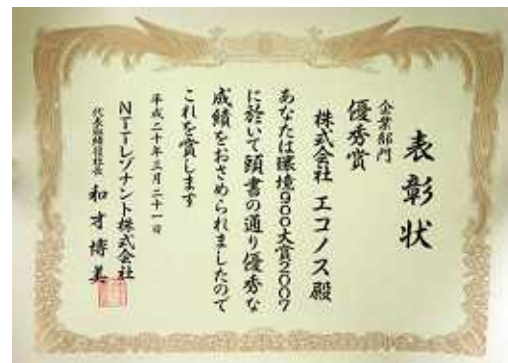 表彰状
企業部門
優秀賞
株式会社 エコノス 殿
あなたは環境goo大賞2007
に於いて頭書の通り優秀な
成績をおさめられましたので
これを賞します
平成二十年三月二十一日
NTTレゾナント株式会社
代表取締役社長 和才博美